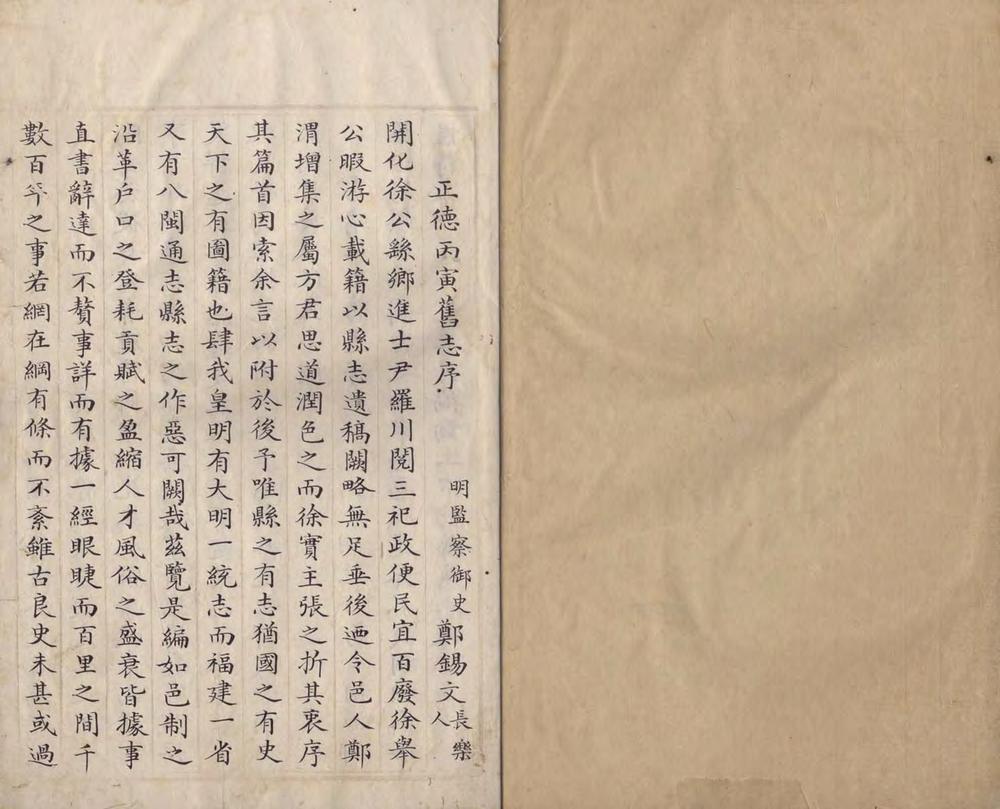 正德丙寅舊志序
明監察御史鄭錫文長樂人
開化徐公繇鄉進士尹羅川閱三祀政便民宜百廢徐舉
公暇游心載籍以縣志遺稿闕略無足垂後迺令邑人鄭
渭增集之屬方君思道潤色之而徐實主張之折其衷序
其篇首因索余言以附於後予唯縣之有志猶國之有史
天下之有圖籍也肆我皇明有大明一統志而福建一省
又有八閩通志縣志之作惡可闕哉茲覽是編如邑制之
沿革户口之登耗貢賦之盈縮人才風俗之盛衰皆據事
直書辭達而不贅事詳而有據一經眼睫而百里之間千
數百年之事若網在綱有條而不紊雖古良史未甚或過